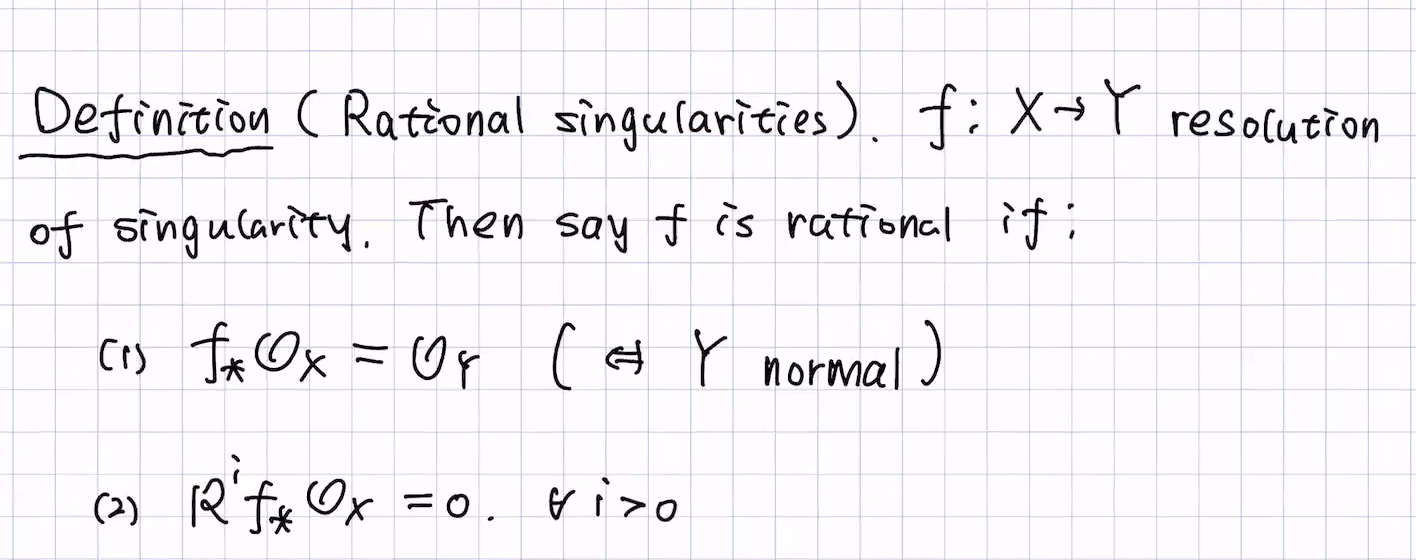 Definition (Rational singularities). f: X→Y resolution
of singularity. Then say f is rational if:
(1) f_*O_X = O_Y ( ⇔ Y normal )
(2) R^i f_*O_X = 0. ∀ i>0